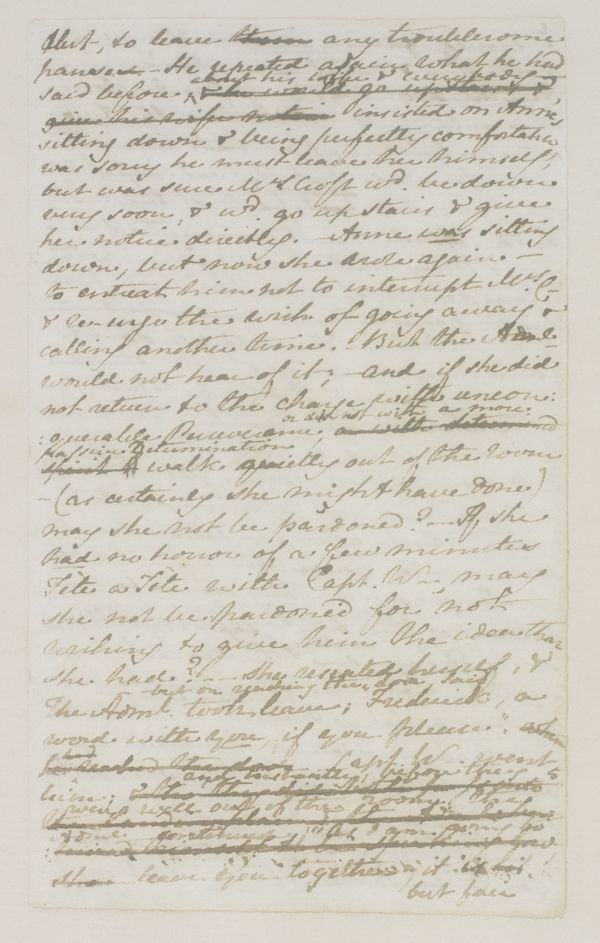 But, to leave them any troublesome
pauses. – He repeated again what he had
about his Wife & everybody
said before, & he would go up stairs &
give his wife notice insisted on Anne's
sitting down & being perfectly comfortable
was sorry he must leave her himself,
but was sure Mrs Croft wd. be down
very soon, & wd. go up stairs & give
her notice directly. – Anne was sitting
down, but now she arose again –
to entreat him not to interrupt Mrs C–
& re-urge the wish of going away &
calling another time. – But the Adml.
would not hear of it; – and if she did
not return to the charge with uncon:
or did not with a more
:querable Perseverance, or with determined
passive Determination
walk quietly out of the room
– (as certainly she might have done)
may she not be pardoned? – If she
had no horror of a few minutes
Tète a Tète with Capt. W–, may
she not be pardoned for not
wishing to give him the idea that
she had? – She reseated herself, &
but on reaching the door said
The Adml. took leave; Frederick, a
word with you, if you please." when
had
he reached the door Capt. W– went to
and instantly, before they
him;
were well out of the room, the
Adml. continued "As I am going to
leave you together, it is
but fair